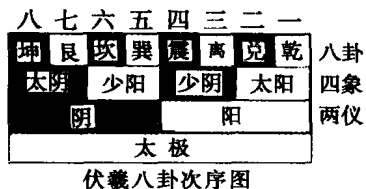 八 七 六 五 四 三 二 一
坤 艮 坎 巽 震 离 兑 乾 八卦
太阴 少阳 少阴 太阳 四象
阴 阳 两仪
太极
伏羲八卦次序图